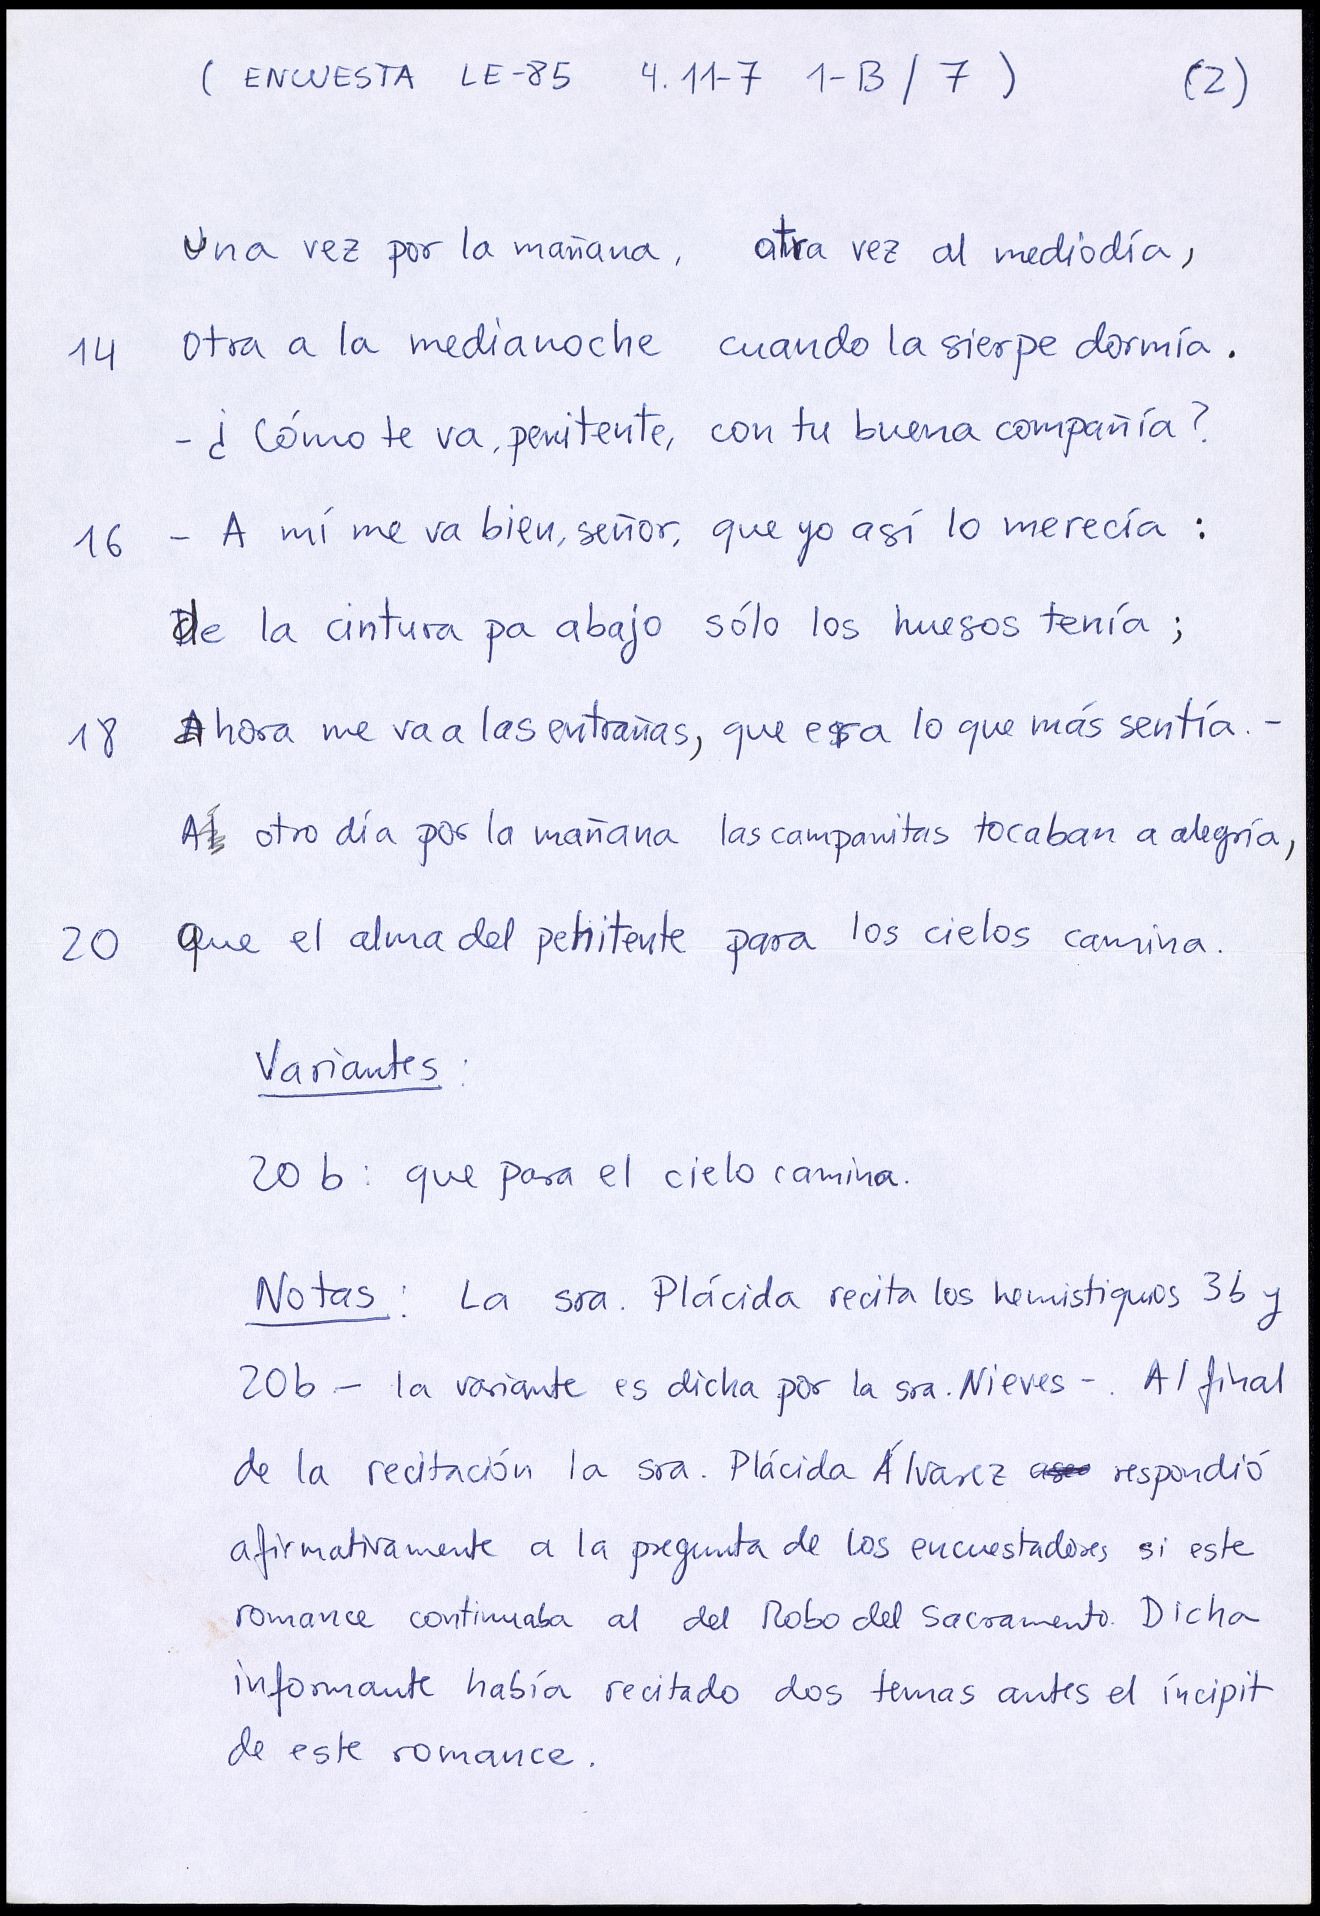 ( ENCUESTA LE-85 4.11-7 1-B / 7 ) (2)
Una vez por la mañana, otra vez al mediodía,
14 Otra a la medianoche cuando la sierpe dormía.
- ¿Cómo te va, penitente, con tu buena compañía?
16 - A mí me va bien, señor, que yo así lo merecía:
De la cintura pa abajo sólo los huesos tenía;
18 Ahora me va a las entrañas, que era lo que más sentía. -
Al otro día por la mañana las campanitas tocaban a alegría,
20 Que el alma del penitente para los cielos camina.
Variantes:
20 b: que para el cielo camina.
Notas: La sra. Plácida recita los hemistiquios 3b y
20b - la variante es dicha por la sra. Nieves -. Al final
de la recitación la sra. Plácida Álvarez respondió
afirmativamente a la pregunta de los encuestadores si este
romance continuaba al del Robo del Sacramento. Dicha
informante había recitado dos temas antes el íncipit
de este romance.